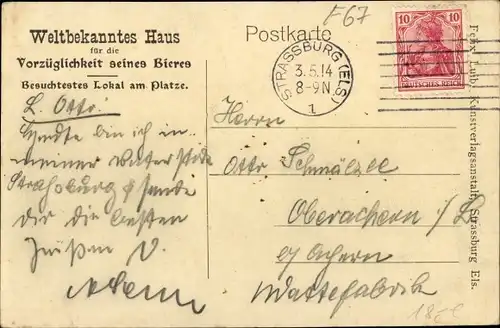 F67
Weltbekanntes Haus
für die
Vorzüglichkeit seines Bieres
Besuchtestes Lokal am Platze.
Postkarte
STRASSBURG (ELS)
3.5.14
8-9N.
1
10 10
DEUTSCHES REICH
L. Otto!
bin ich in
meiner Vaterstadt
Straßburg & sende
Dir die besten
Grüßen V.
Herrn
Otto
Oberachern i/B.
b/ Achern
Wattefabrik
Felix Luib, Kunstverlagsanstalt, Strassburg Els.